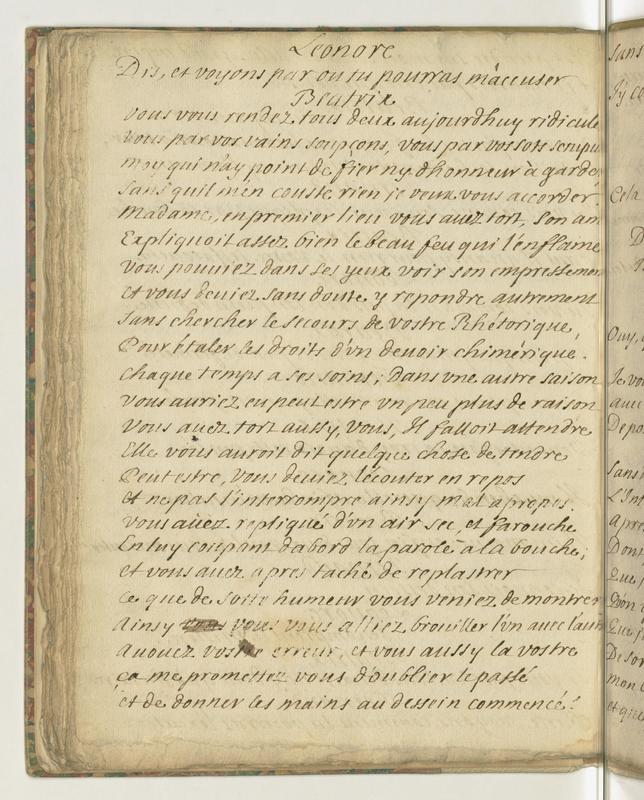 Leonore
Dis, et voyons par ou tu pourras m'accuser
Beatrix
Vous vous rendez tous deux aujourdhuy ridicule
Vous par vos vains soupçons, vous par vos sots scrupu
moy qui n'ay point de fier ny dhonneur à garder
Sans quil m'en couste rien je veux vous accorder.
Madame, en premier lieu vous auez tort, son am
Expliquoit assez bien le beau feu qui l'enflame
Vous pouuiez dans ses yeux voir son empressemen
Et vous deuiez sans doute y repondre autrement
Sans chercher le secours de vostre Rhétorique,
Pour étaler les droits d'vn deuoir chimérique.
Chaque temps a ses soins; Dans vne autre saison
Vous auriez eu peut estre vn peu plus de raison
Vous auez tort aussy, vous, Il falloit attendre
Elle vous auroit dit quelque chose de tendre
Peut estre, vous deuiez lécouter en repos
Et ne pas l'interrompre ainsy mal apropos.
Vous auez repliqué d'vn air sec, et farouche
En luy coupant dabord la parole à la bouche;
et vous auez apres taché de replastrer
Ce que de sotte humeur vous veniez de montrer
Ainsy vous vous alliez brouiller l'vn auec l'autr
Auouez vostre erreur, et vous aussy la vostre
ça me promettez vous d'oublier le passé
et de donner les mains au dessein commencé?
Sans
Cela
Ouy,
Je vo
auec
Depo
Sans
L'Int
Apre
Dont
Que
Don
Que
De sor
mon
et que